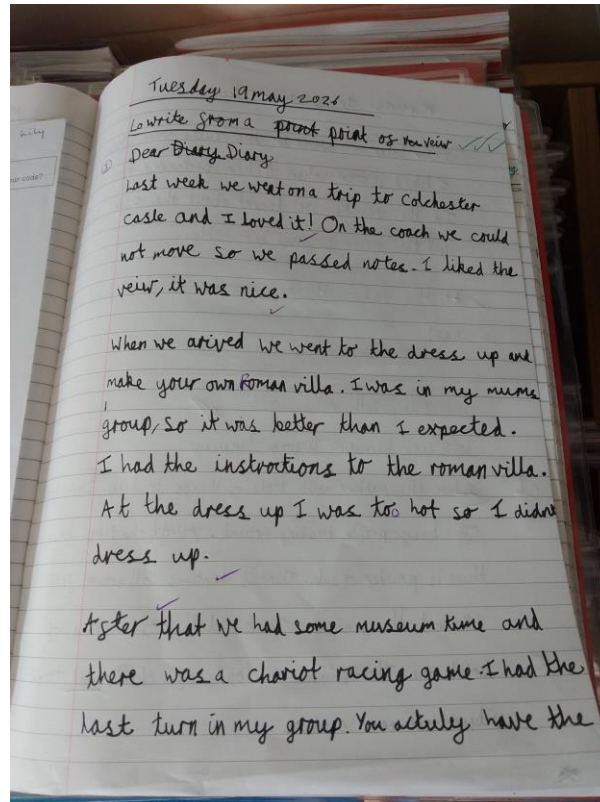 Tuesday 19 may 2026
Lo write from a point point of veiw
Dear Diary Diary
Last week we went on a trip to Colchester
casle and I loved it! On the coach we could
not move so we passed notes. I liked the
veiw, it was nice.
When we arived we went to the dress up and
make your own Roman villa. I was in my mums
group, so it was better than I expected.
I had the instroctions to the roman villa.
At the dress up I was too hot so I didnt
dress up.
After that we had some museum time and
there was a chariot racing game. I had the
last turn in my group. You actuly have the